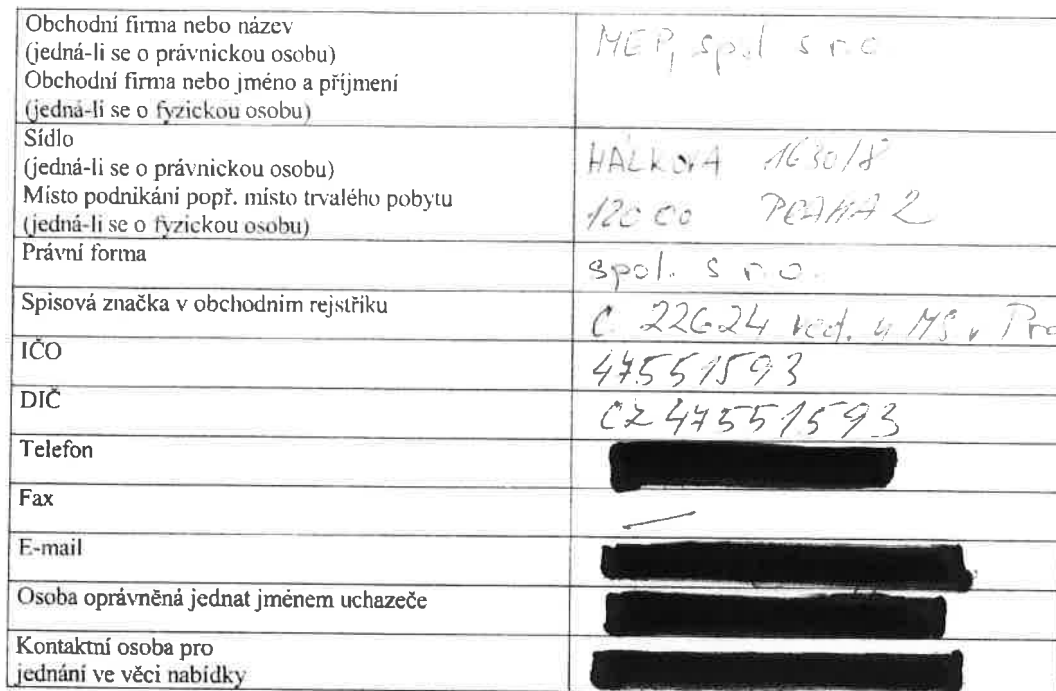 Obchodní firma nebo název
(jedná-li se o právnickou osobu)
Obchodní firma nebo jméno a příjmení
(jedná-li se o fyzickou osobu)
MEP, spol s r.o
Sídlo
(jedná-li se o právnickou osobu)
Místo podnikání popř. místo trvalého pobytu
(jedná-li se o fyzickou osobu)
HÁLKOVA 1630/8
120 00 PRAHA 2
Právní forma
spol. s r.o.
Spisová značka v obchodním rejstříku
C 22624 ved. u MS v Pra
IČO
47551593
DIČ
CZ 47551593
Telefon
Fax
—
E-mail
Osoba oprávněná jednat jménem uchazeče
Kontaktní osoba pro
jednání ve věci nabídky